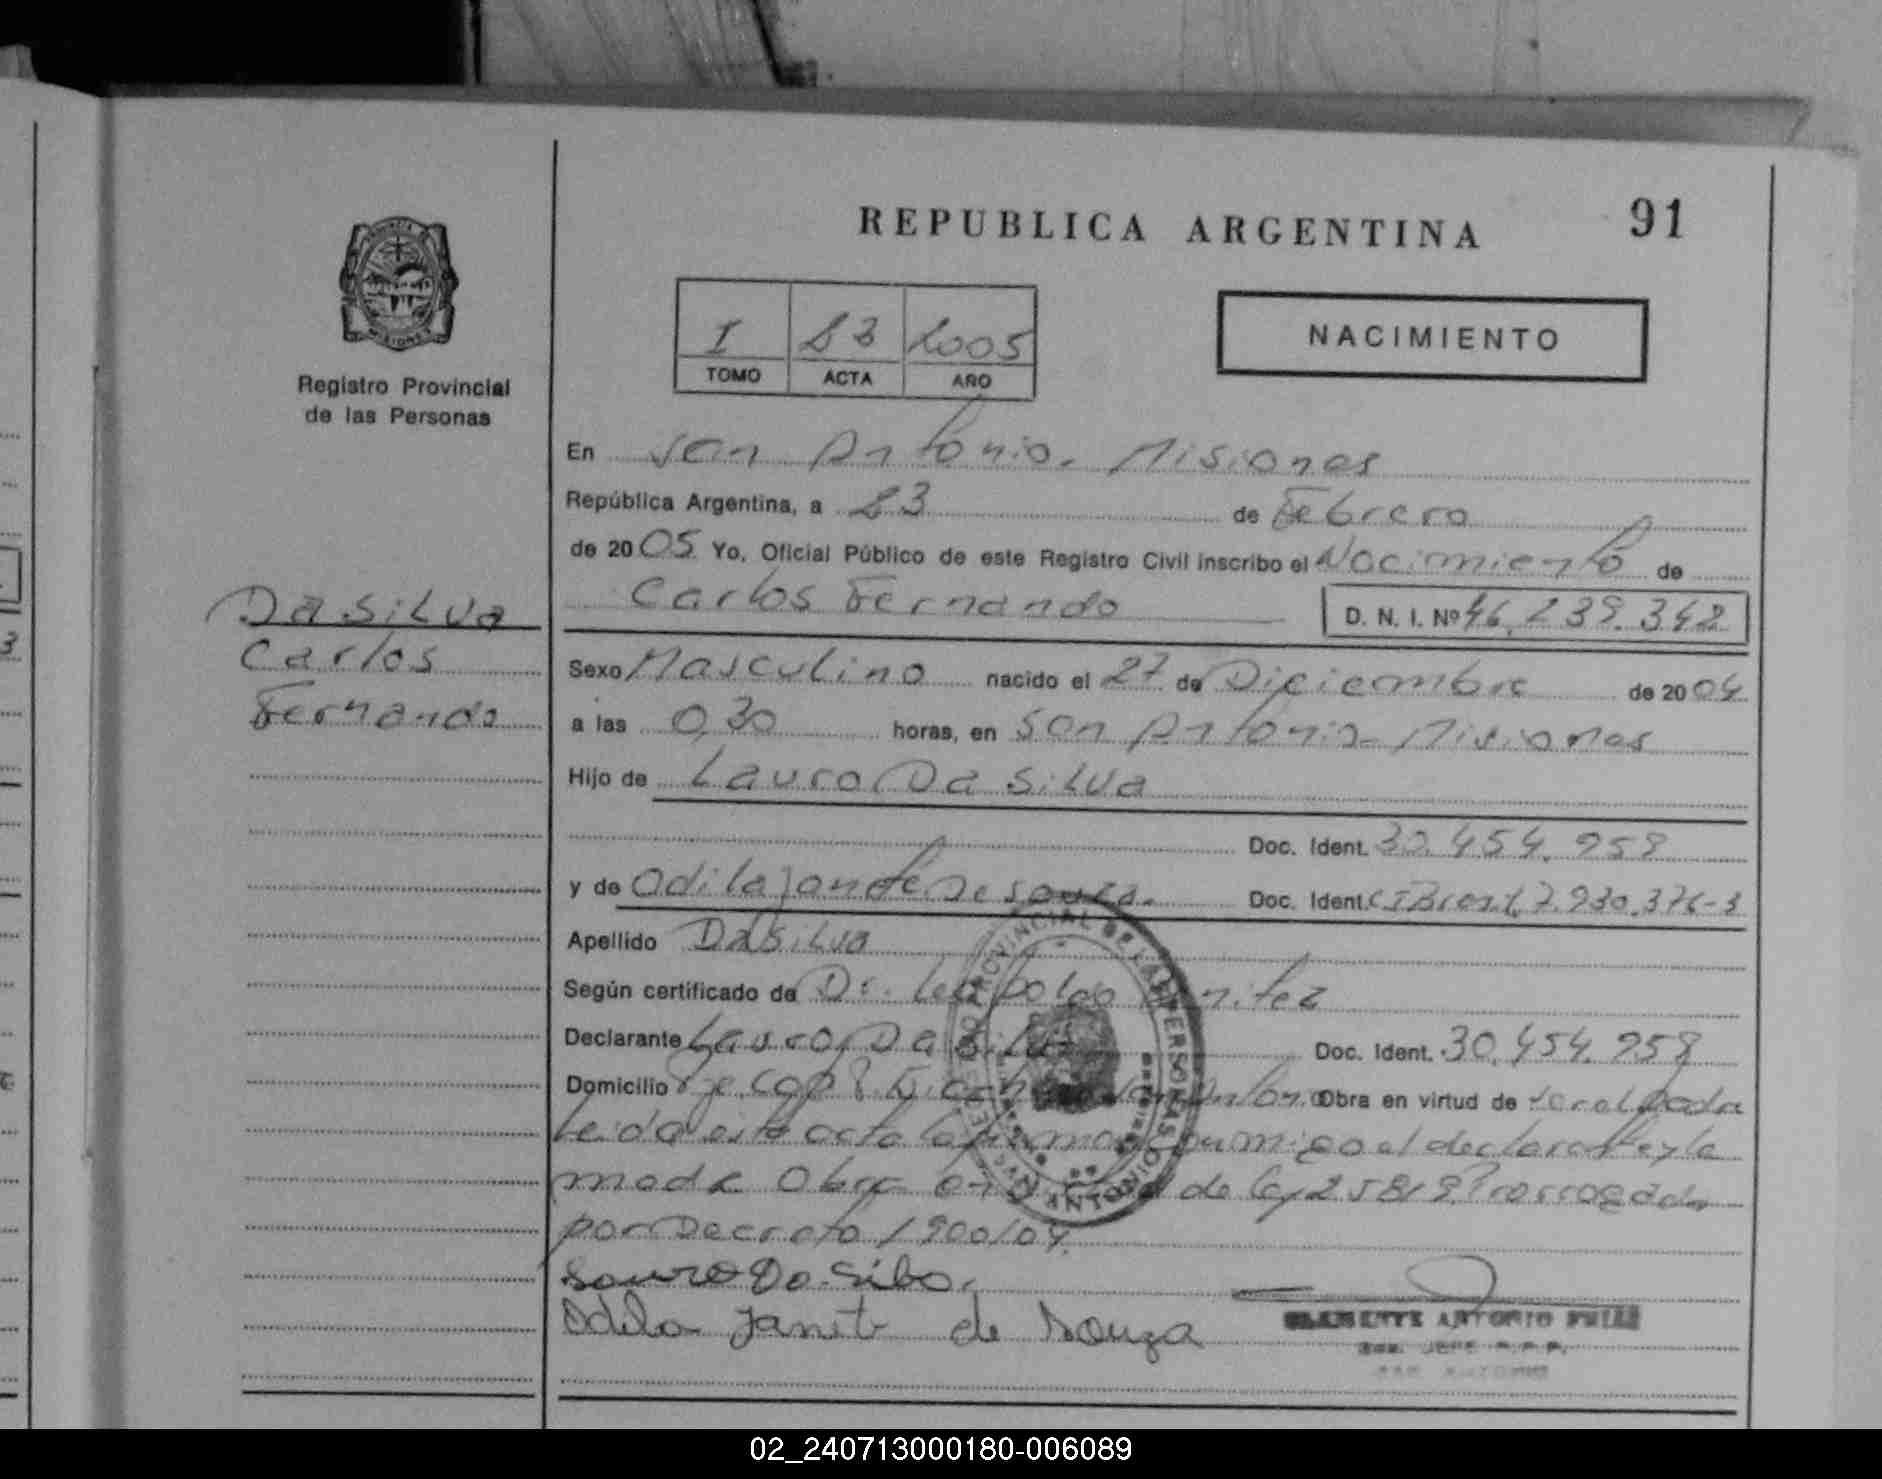 REPUBLICA ARGENTINA
91
PROVINCIA
MISIONES
Registro Provincial
de las Personas
I 23 2005
TOMO ACTA AÑO
NACIMIENTO
En San Antonio. Misiones
República Argentina, a 23 de Febrero
de 2005 Yo, Oficial Público de este Registro Civil inscribo el Nacimiento de
Carlos Fernando D. N. I. Nº 46.239.342
Da Silva
Carlos
Fernando
Sexo Masculino nacido el 27 de Diciembre de 2004
a las 0,30 horas, en San Antonio - Misiones
Hijo de Lauro Da Silva
Doc. Ident. 30.454.958
y de Odila Janete De Souza. Doc. Ident. CI Brasil. 7.930.376-3
Apellido Da Silva
Según certificado de Dr. Leopoldo Benitez
Declarante Lauro Da Silva Doc. Ident. 30.454.958
Domicilio San Antonio Obra en virtud de
Leida esta acta la firman conmigo el declarante y la
madre Obra en de Ley 25819 Prorrogada
por Decreto 1900/04.
Lauro Da Silva.
Odila Janete de Souza
CLEMENTE ANTONIO
JEFE R.P.P.
SAN ANTONIO
REGISTRO PROVINCIAL DE LAS PERSONAS
SAN ANTONIO
02_240713000180-006089